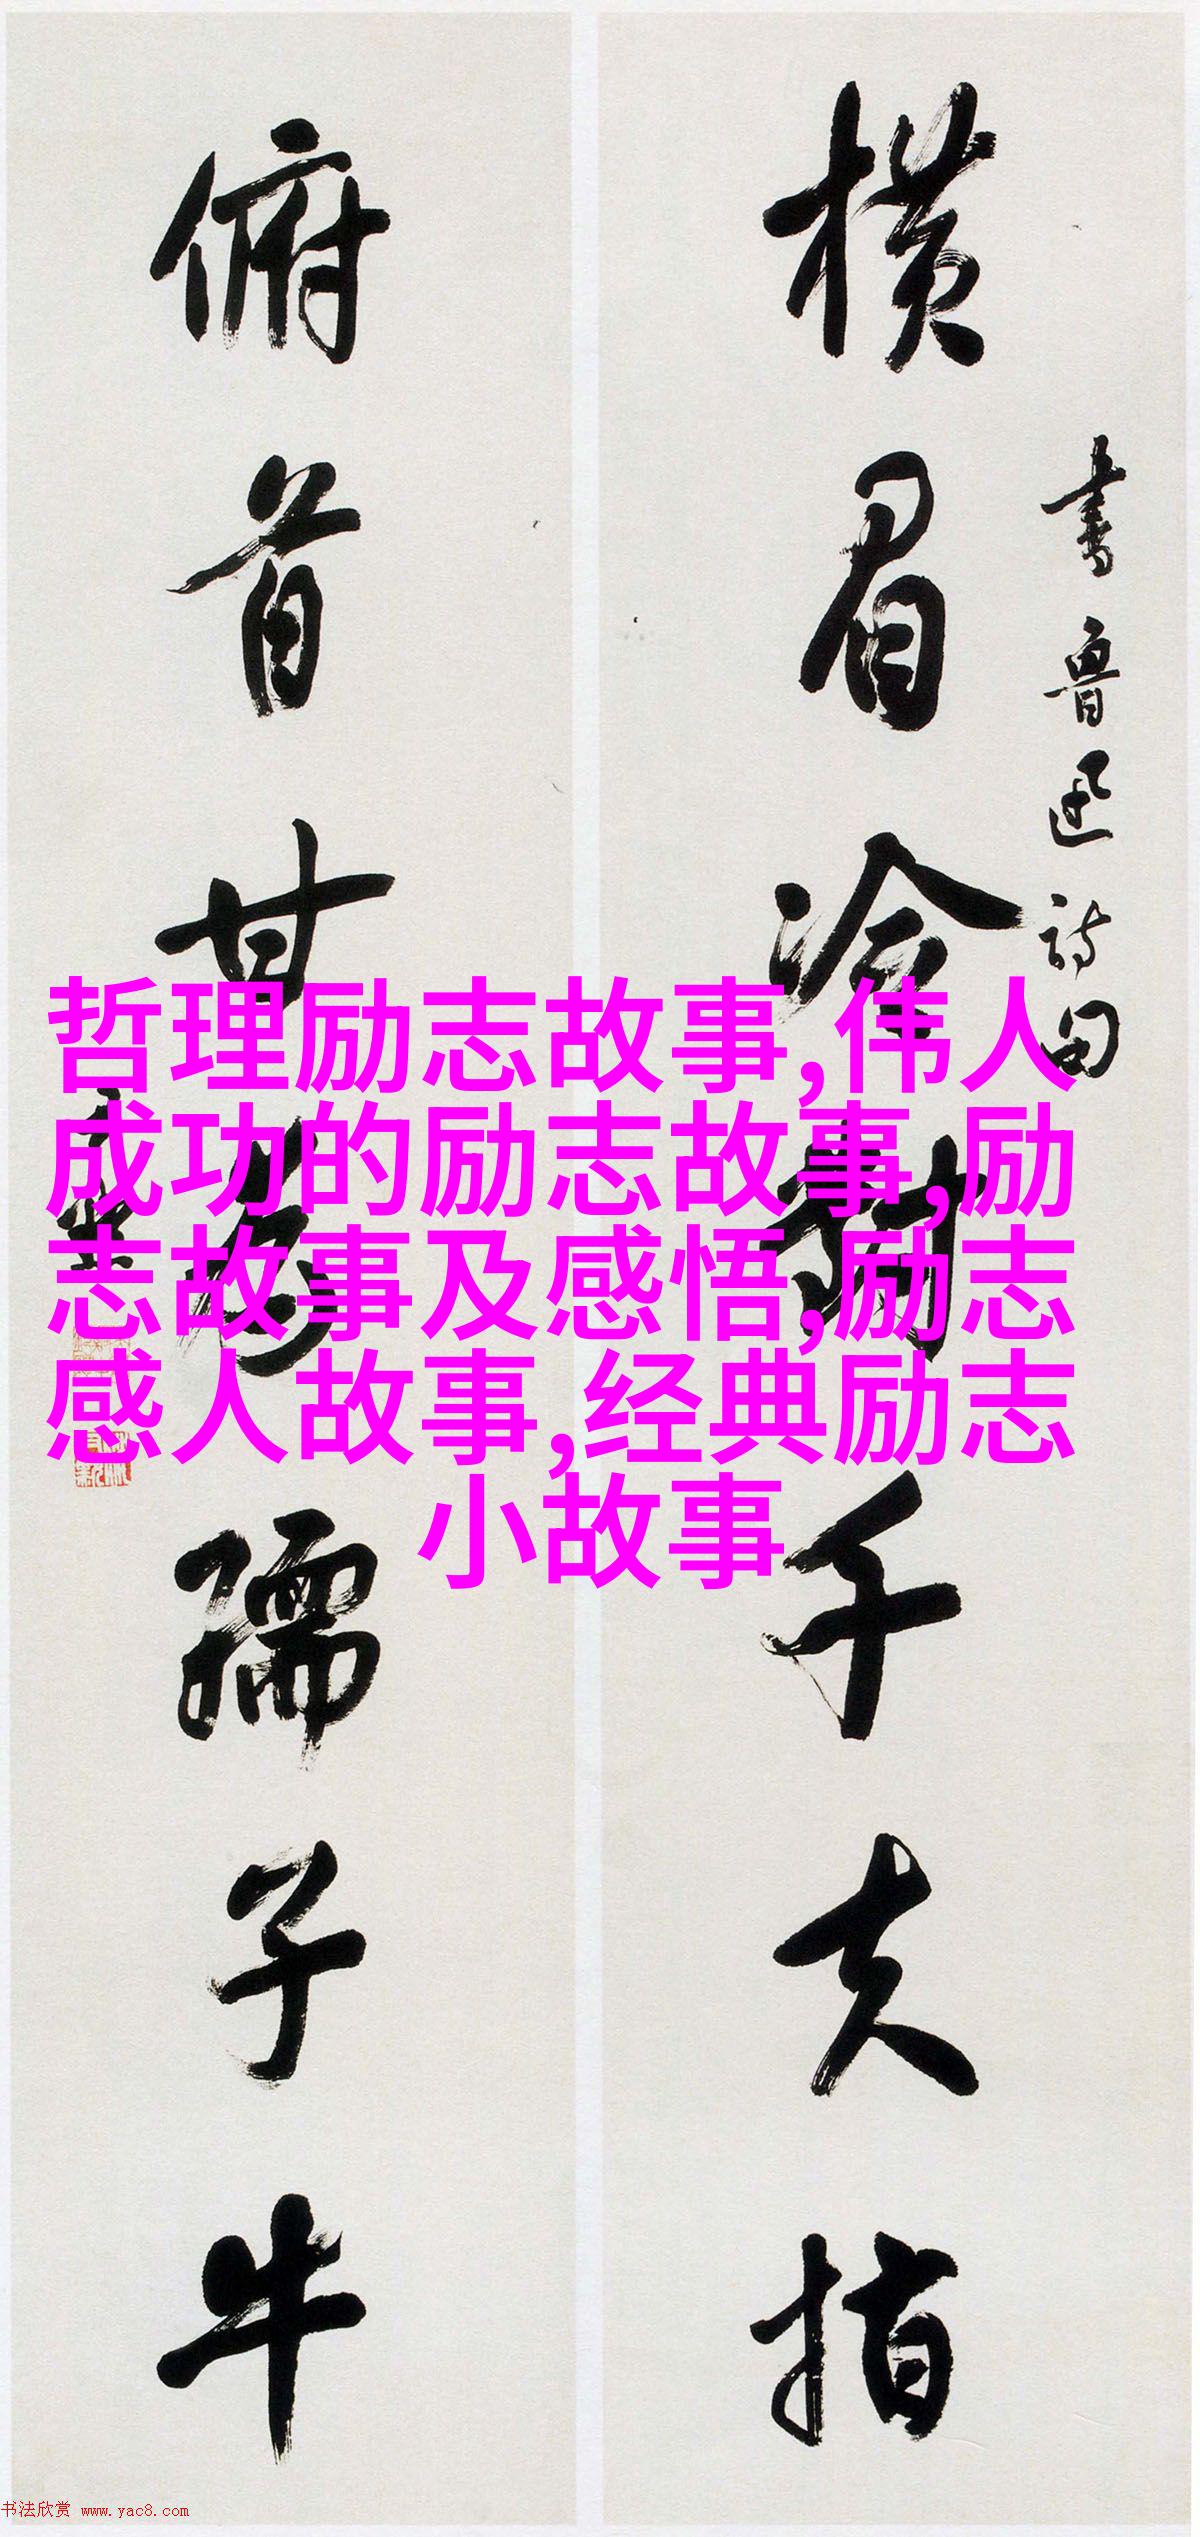 横眉冷对千夫指
书鲁迅诗句
俯首甘为孺子牛
哲理励志故事,伟人
成功的励志故事,励
志故事及感悟,励志
感人故事,经典励志
小故事
书法欣赏 www.yac8.com